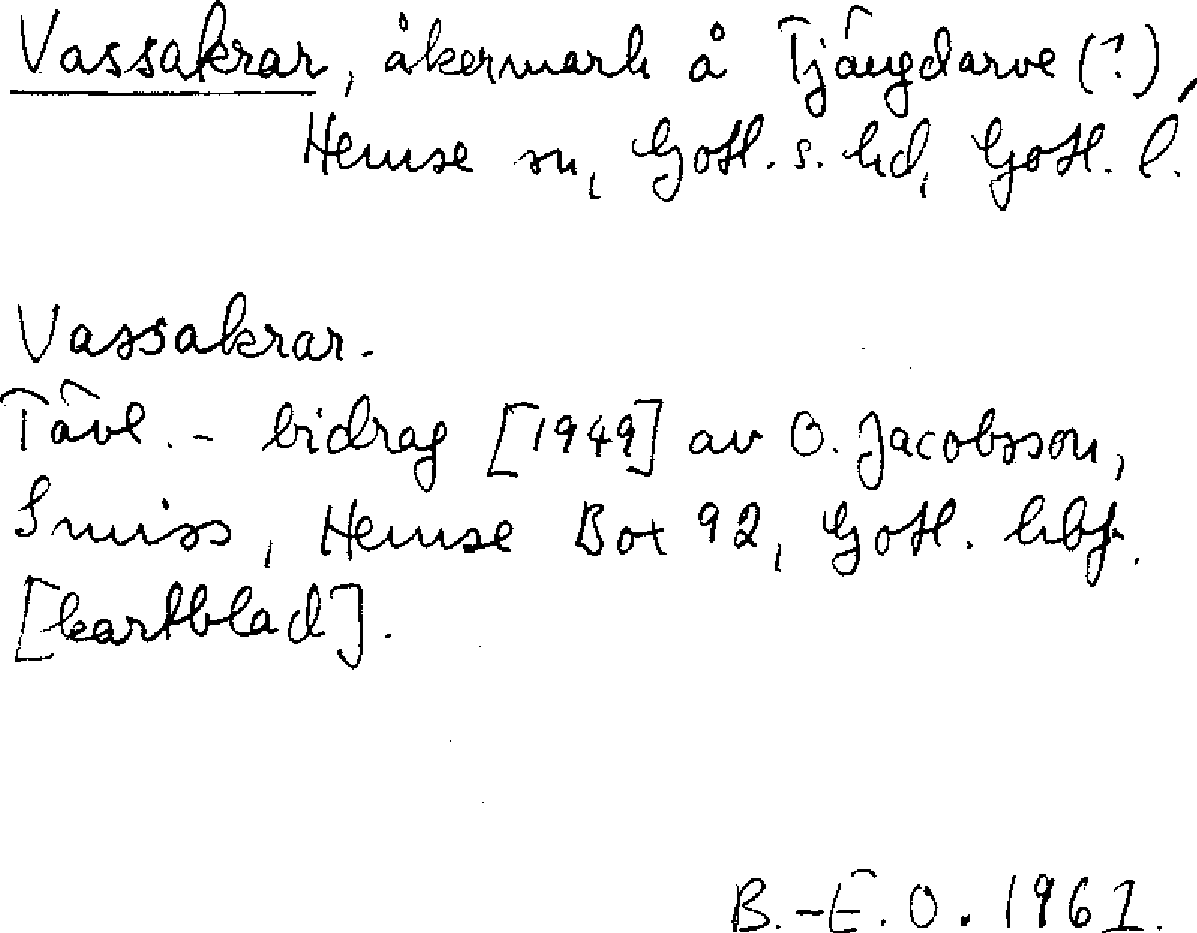 Vassakrar, åkermark å Tjängdarve (?),
Hemse sn, Gotl. s. hd, Gotl. l.
Vassakrar.
Tävl. - bidrag [1949] av O. Jacobsson,
Smiss, Hemse Box 92, Gotl. hbf.
[kartblad].
B.-E. O. 1961.